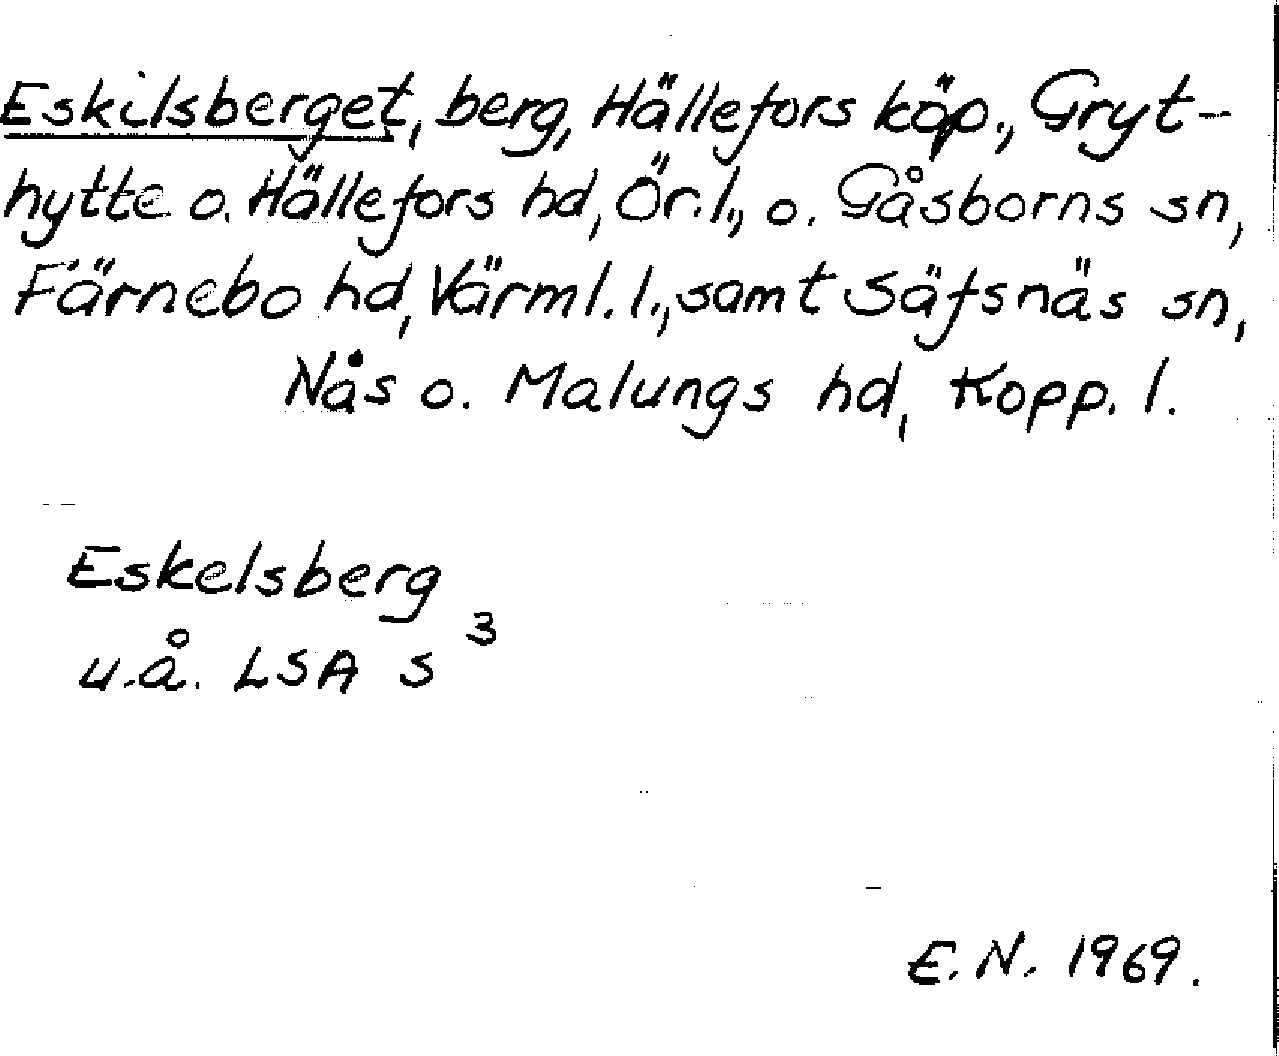 Eskilsberget, berg, Hällefors köp., Gryt-
hytte o. Hällefors hd, Ör.l., o. Gåsborns sn,
Färnebo hd, Värml. l., samt Säfsnäs sn,
Nås o. Malungs hd, Kopp. l.
Eskelsberg
u.å. LSA S 3
E.N. 1969.